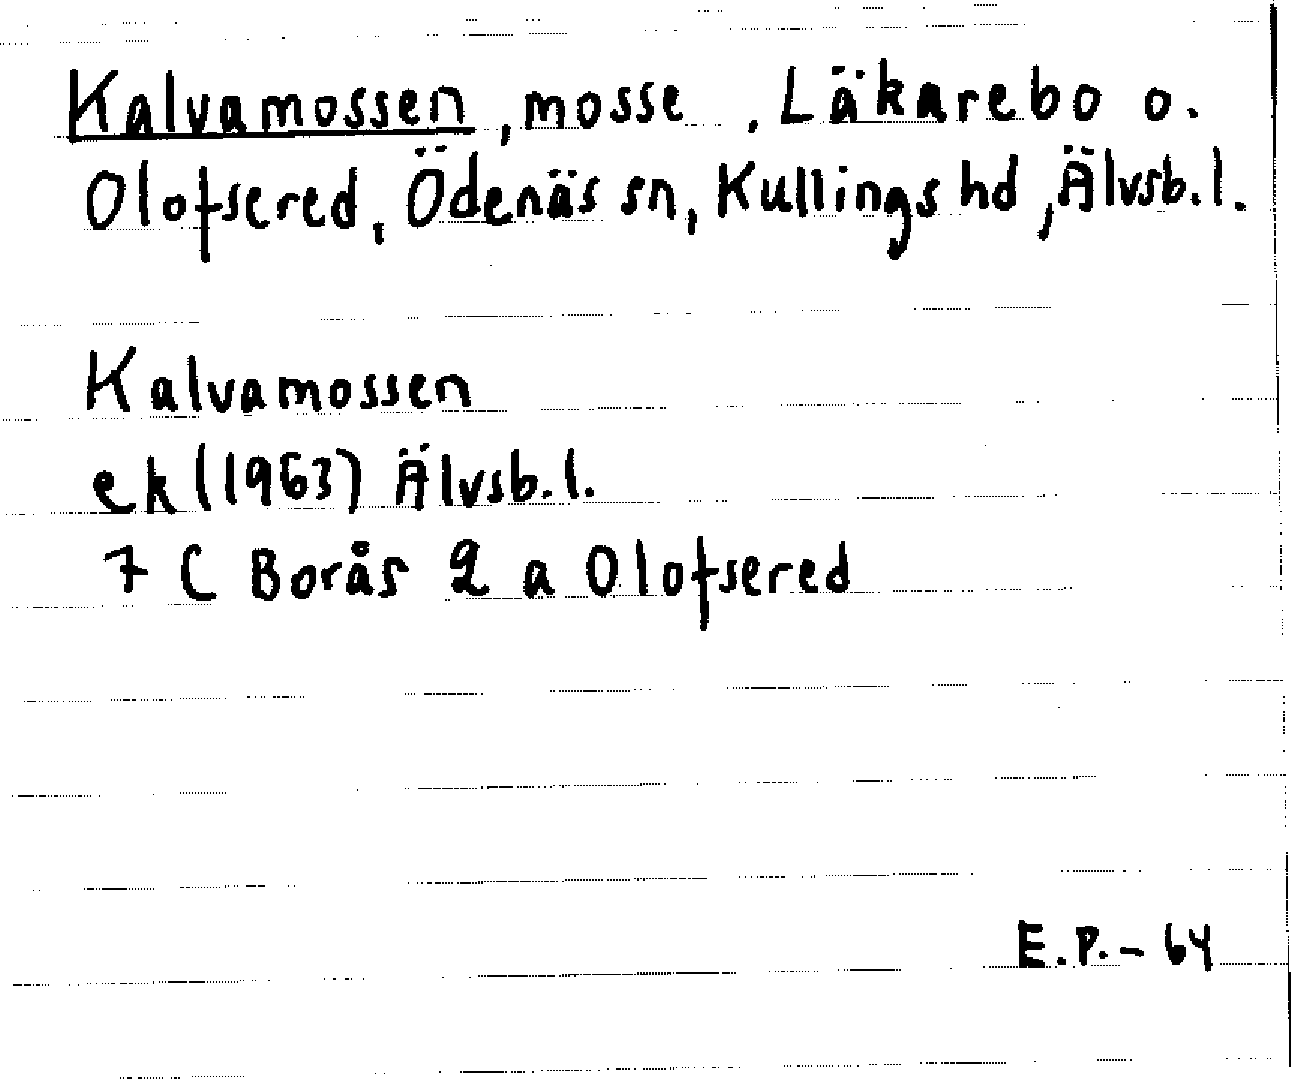 Kalvamossen, mosse, Läkarebo o.
Olofsered, Ödenäs sn, Kullings hd, Älvsb.l.
Kalvamossen
ek (1963) Älvsb.l.
7 C Borås 2 a Olofsered
E.P. - 64